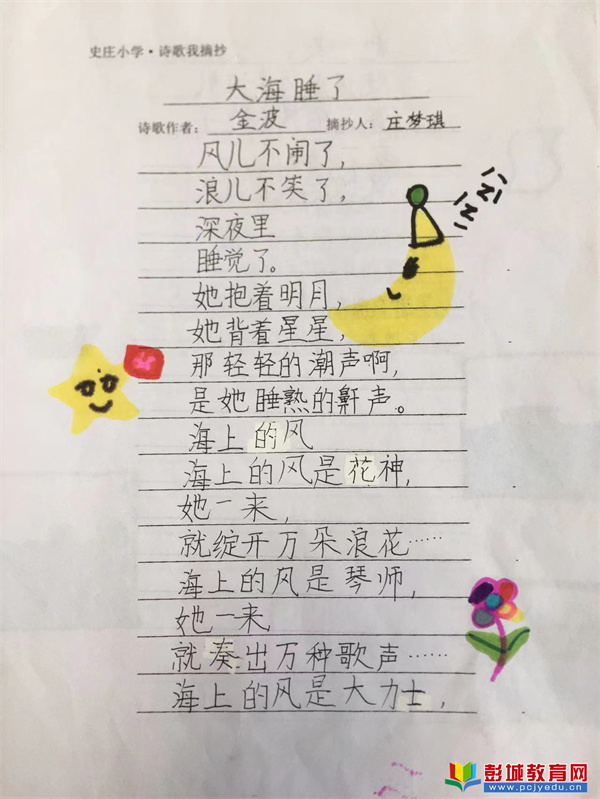 史庄小学·诗歌我摘抄
大海睡了
诗歌作者：金波 摘抄人：庄梦琪
风儿不闹了，
浪儿不笑了，
深夜里
睡觉了。
她抱着明月，
她背着星星，
那轻轻的潮声啊，
是她睡熟的鼾声。
海上的风
海上的风是花神，
她一来，
就绽开万朵浪花……
海上的风是琴师，
她一来，
就奏出万种歌声……
海上的风是大力士，
彭城教育网
www.pcjyedu.cn